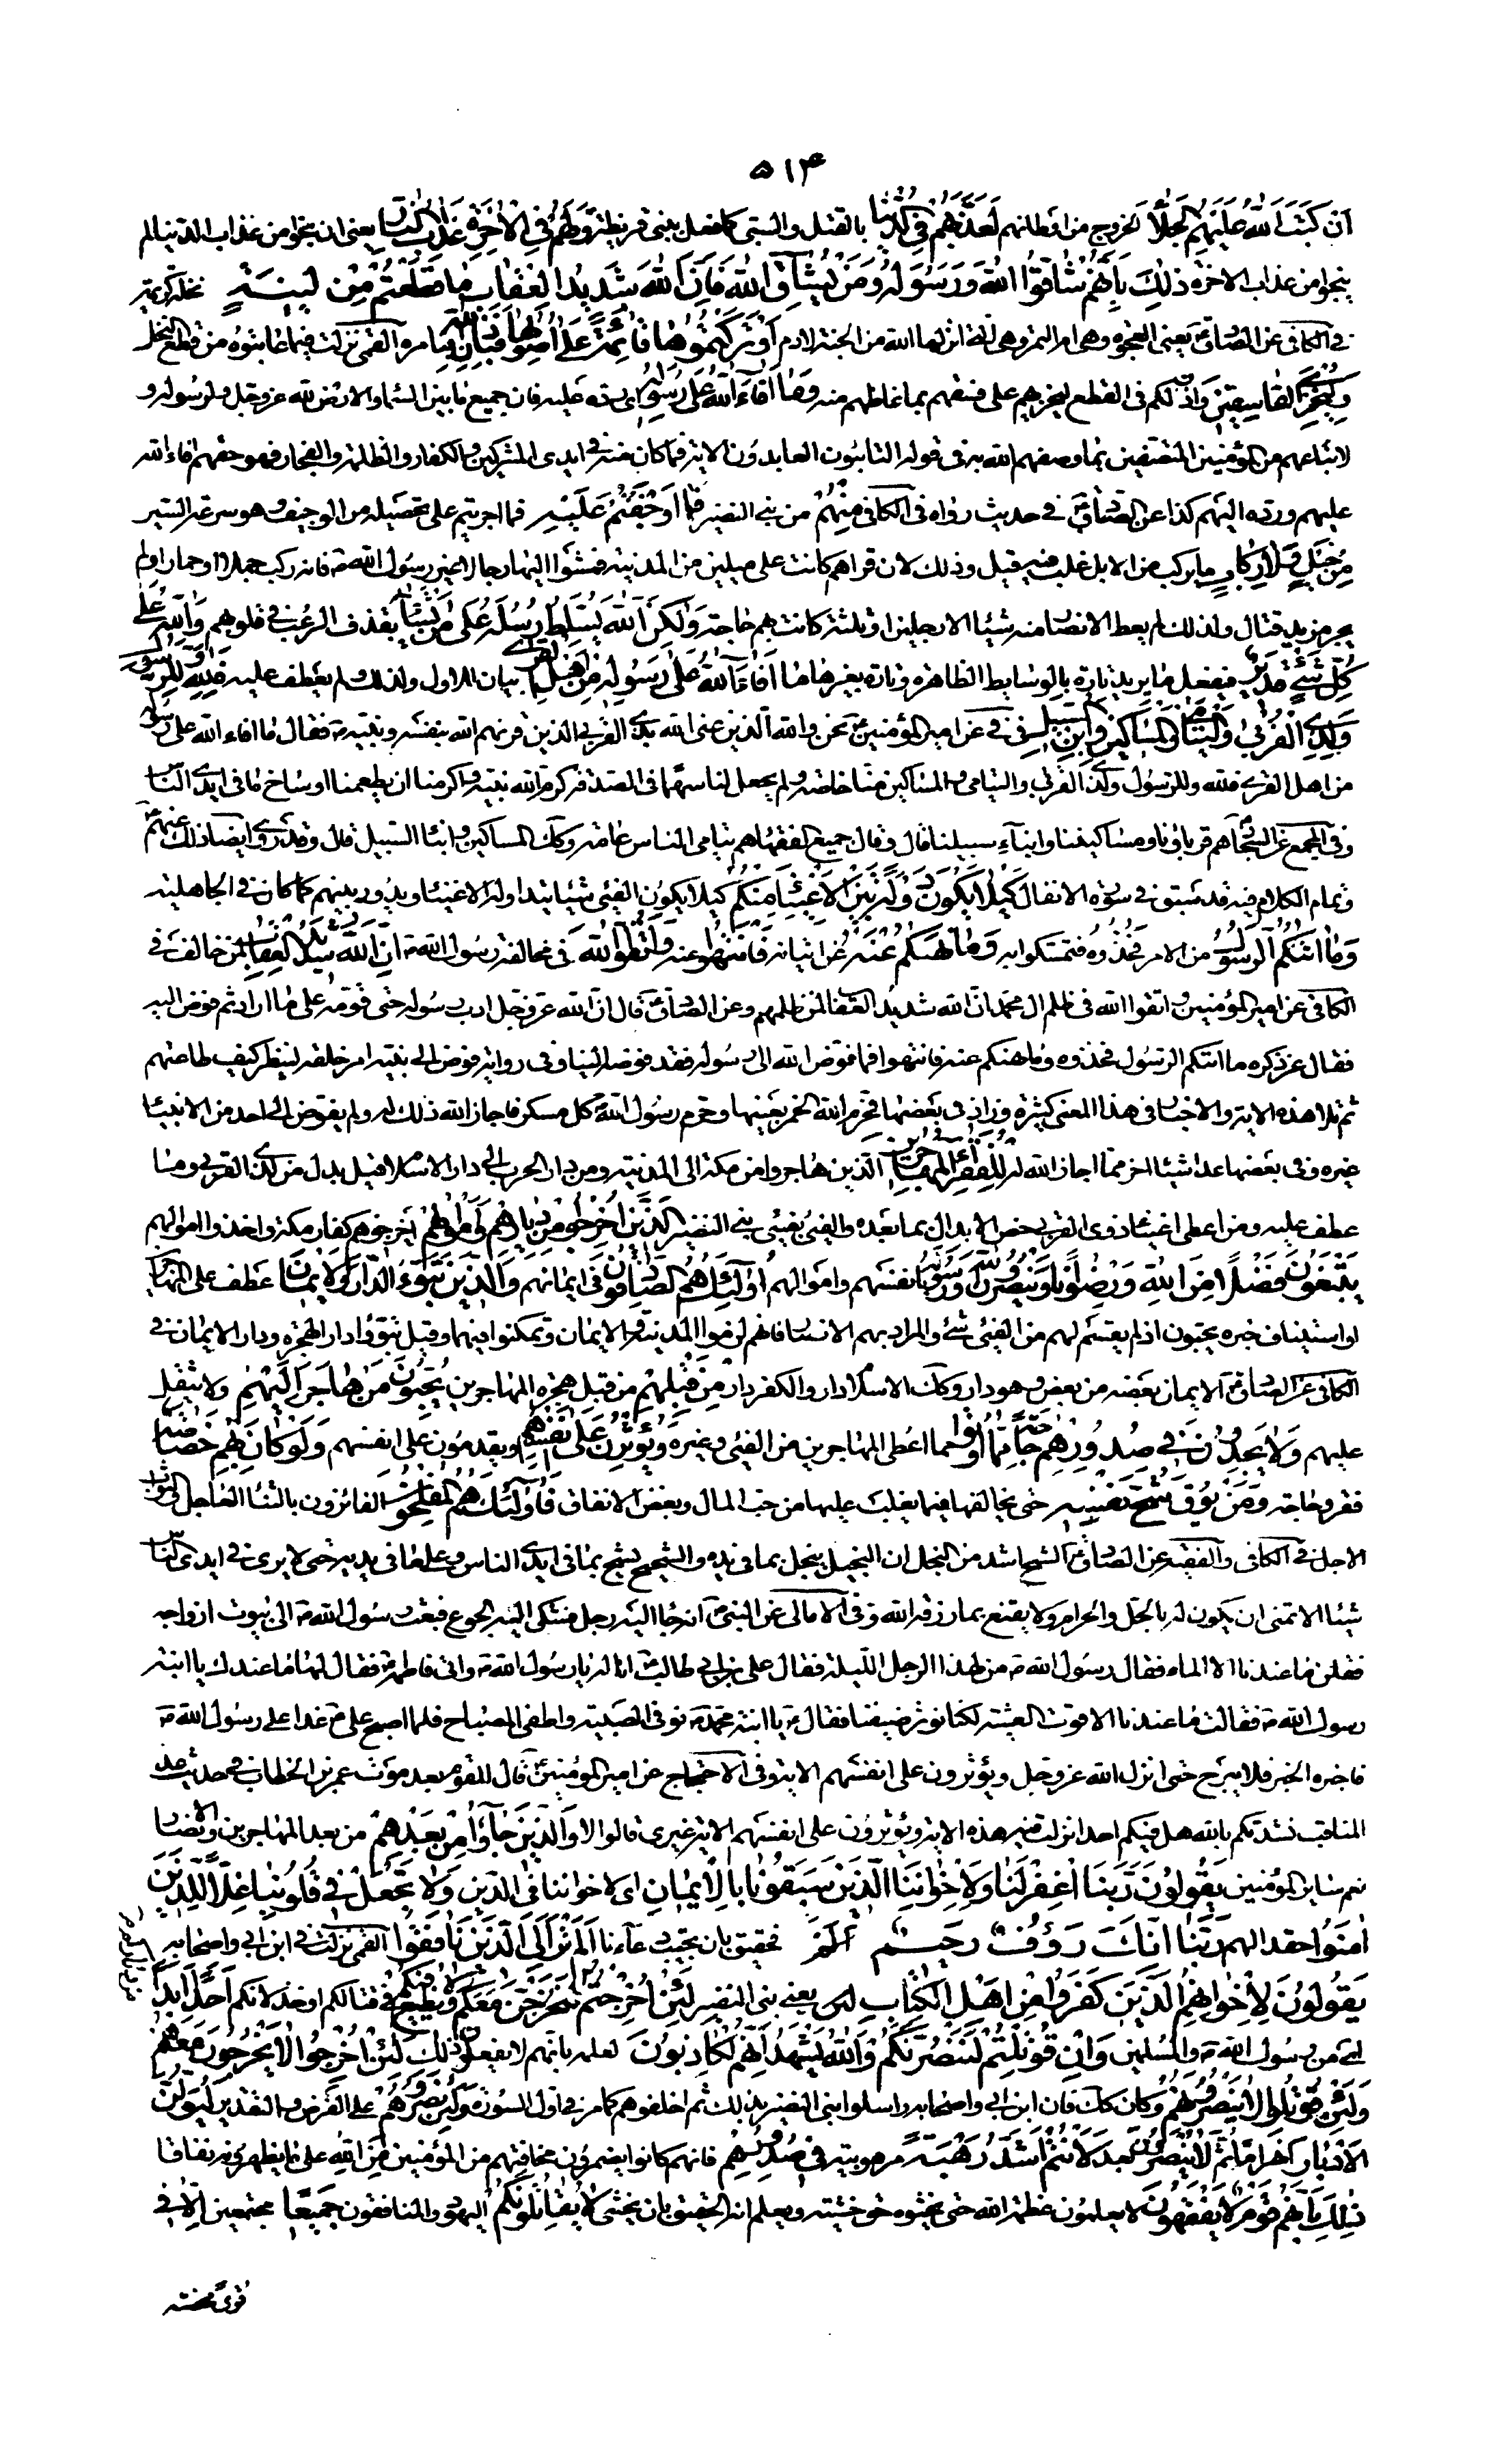 ۵۱۴
ان كتب الله عليهم الجلاء الخروج من اوطانهم لعذبهم في الدنيا بالقتل والسبي كما فعل ببني قريظة ولهم في الآخرة عذاب النار يعني ان نجوا من عذاب الدنيا لم
ينجوا من عذاب الاخرة ذلك بانهم شاقوا الله ورسوله ومن يشاق الله فان الله شديد العقاب ما قطعتم من لينة نخلة كريمة
في الكافي عن الصادق ع يعني العجوة وهي ام التمر وهي التي انزلها الله من الجنة لادم او تركتموها قائمة على اصولها فباذن الله فبامره القمي نزلت فيما عاتبوه من قطع النخل
وليخزي الفاسقين واذن لكم في القطع ليخزيهم على فسقهم بما غاظهم منه وما افاء الله على رسوله اي رده عليه فان جميع ما بين السماء والارض لله عز وجل ولرسوله و
لاتباعهم من المؤمنين المتصفين بما وصفهم الله به في قوله التائبون العابدون الاية فما كان منه في ايدي المشركين والكفار والظلمة والفجار فهو حقهم افاء الله
عليهم ورده اليهم كذا عن الصادق ع في حديث رواه في الكافي منهم من بني النضير فما اوجفتم عليه فما اجريتم على تحصيله من الوجيف وهو سرعة السير
من خيل ولا ركاب ما يركب من الابل غلب فيه قيل وذلك لان قراهم كانت على ميلين من المدينة فمشوا اليها رجالا غير رسول الله ص فانه ركب جملا او حمارا ولم
يجر مزيد قتال ولذلك لم يعط الانصار منه شيئا الا رجلين او ثلثة كانت بهم حاجة ولكن الله يسلط رسله على من يشاء بقذف الرعب في قلوبهم والله على
كل شيء قدير فيفعل ما يريد تارة بالوسايط الظاهرة وتارة بغيرها ما افاء الله على رسوله من اهل القرى بيان للاول ولذلك لم يعطف عليه فلله وللرسول
ولذي القربى واليتامى والمساكين وابن السبيل في في عن امير المؤمنين ع نحن والله الذين عنى الله بذي القربى الذين قرنهم الله بنفسه ونبيه ص فقال ما افاء الله على رسوله
من اهل القرى فلله وللرسول ولذي القربى واليتامى والمساكين منا خاصة ولم يجعل لنا سهما في الصدقة كرم الله نبيه واكرمنا ان يطعمنا اوساخ ما في ايدي الناس
وفي المجمع عن السجاد ع هم قربانا ومساكيننا وابناء سبيلنا قال وقال جميع الفقهاء هم يتامى الناس عامة وكك المساكين وابناء السبيل قال وقد روي ايضا ذلك عنهم ع
وتمام الكلام فيه قد سبق في سورة الانفال كيلا يكون دولة بين الاغنياء منكم كيلا يكون الفيء شيئا يتداوله الاغنياء ويدور بينهم كما كان في الجاهلية
وما اتيكم الرسول من الامر فخذوه فتمسكوا به وما نهيكم عنه عن اتيانه فانتهوا عنه واتقوا الله في مخالفة رسول الله ص ان الله شديد العقاب لمن خالف في
الكافي عن امير المؤمنين ع واتقوا الله في ظلم ال محمد ان الله شديد العقاب لمن ظلمهم وعن الصادق ع قال ان الله عز وجل ادب رسوله حتى قومه على ما اراد ثم فوض اليه
فقال عز ذكره ما اتيكم الرسول فخذوه وما نهيكم عنه فانتهوا فما فوض الله الى رسوله فقد فوضه الينا وفي رواية فوض الى نبيه امر خلقه لينظر كيف طاعتهم
ثم تلا هذه الاية والاخبار في هذا المعنى كثيرة وزاد في بعضها فحرم الله الخمر بعينها وحرم رسول الله ص كل مسكر فاجاز الله ذلك له ولم يفوض الى احد من الانبياء
غيره وفي بعضها عد اشياء اخر مما اجاز الله له للفقراء المهاجرين الذين هاجروا من مكة الى المدينة ومن دار الحرب الى دار الاسلام قيل بدل من لذي القربى وما
عطف عليه ومن اعطى اغنياء ذوي القربى خص الابدال بما بعده والفيء بفيء بني النضير الذين اخرجوا من ديارهم واموالهم اخرجهم كفار مكة واخذوا اموالهم
يبتغون فضلا من الله ورضوانا وينصرون الله ورسوله بانفسهم واموالهم اولئك هم الصادقون في ايمانهم والذين تبوؤا الدار والايمان عطف على المهاجرين
او استيناف خبره يحبون اذ لم يقسم لهم من الفيء شيء والمراد بهم الانصار فانهم لزموا المدينة والايمان وتمكنوا فيهما وقيل تبوؤا دار الهجرة ودار الايمان في
الكافي عن الصادق ع الايمان بعضه من بعض وهو دار وكك الاسلام دار والكفر دار من قبلهم من قبل هجرة المهاجرين يحبون من هاجر اليهم ولا يثقل
عليهم ولا يجدون في صدورهم حاجة مما اوتوا مما اعطى المهاجرين من الفيء وغيره ويؤثرون على انفسهم ويقدمون على انفسهم ولو كان بهم خصاصة
فقر وحاجة ومن يوق شح نفسه حتى يخالفها فيما يغلب عليها من حب المال وبغض الانفاق فاولئك هم المفلحون الفائزون بالثناء العاجل والثواب
الاجل في الكافي والفقيه عن الصادق ع الشح اشد من البخل ان البخيل يبخل بما في يده والشحيح يشح بما في ايدي الناس وعلى ما في يديه حتى لا يرى في ايدي الناس
شيئا الا تمنى ان يكون له بالحل والحرام ولا يقنع بما رزقه الله وفي الامالي عن النبي ص انه جاء اليه رجل فشكى اليه الجوع فبعث رسول الله ص الى بيوت ازواجه
فقلن ما عندنا الا الماء فقال رسول الله ص من لهذا الرجل الليلة فقال علي بن ابي طالب ع انا له يا رسول الله ص واتى فاطمة ع فقال لها ما عندك يا ابنة
رسول الله ص فقالت ما عندنا الا قوت العشية لكنا نؤثر ضيفنا فقال ع يا ابنة محمد ص نومي الصبية واطفي المصباح فلما اصبح علي ع غدا على رسول الله ص
فاخبره الخبر فلم يبرح حتى انزل الله عز وجل ويؤثرون على انفسهم الاية وفي الاحتجاج عن امير المؤمنين ع قال للقوم بعد موت عمر بن الخطاب في حديث عد
المناقب نشدتكم بالله هل فيكم احد انزلت فيه هذه الاية ويؤثرون على انفسهم الاية غيري قالوا لا والذين جاؤا من بعدهم من بعد المهاجرين والانصار
نعم سائر المؤمنين يقولون ربنا اغفر لنا ولاخواننا الذين سبقونا بالايمان اي لاخواننا في الدين ولا تجعل في قلوبنا غلا للذين
امنوا حقدا لهم ربنا انك رؤف رحيم فحقيق بان تجيب دعاءنا الم تر الى الذين نافقوا القمي نزلت في ابن ابي واصحابه
يقولون لاخوانهم الذين كفروا من اهل الكتاب يعني بني النضير لئن اخرجتم لنخرجن معكم ولا نطيع فيكم في قتالكم او خذلانكم احدا ابدا
اي من رسول الله ص والمسلمين وان قوتلتم لننصرنكم والله يشهد انهم لكاذبون لعلمه بانهم لا يفعلون ذلك لئن اخرجوا لا يخرجون معهم
ولئن قوتلوا لا ينصرونهم وكان كك فان ابن ابي واصحابه راسلوا بني النضير بذلك ثم اخلفوهم كما مر في اول السورة ولئن نصروهم على الفرض والتقدير ليولن
الادبار انهزاما ثم لا ينصرون بعد لانتم اشد رهبة مرهوبية في صدورهم فانهم كانوا يضمرون مخافتهم من المؤمنين من الله على ما يظهرونه نفاقا
ذلك بانهم قوم لا يفقهون لا يعلمون عظمة الله حتى يخشوه حق خشيته ويعلم انه الحقيق بان يخشى لا يقاتلونكم اليهود والمنافقون جميعا مجتمعين الا في
قرى محصنة